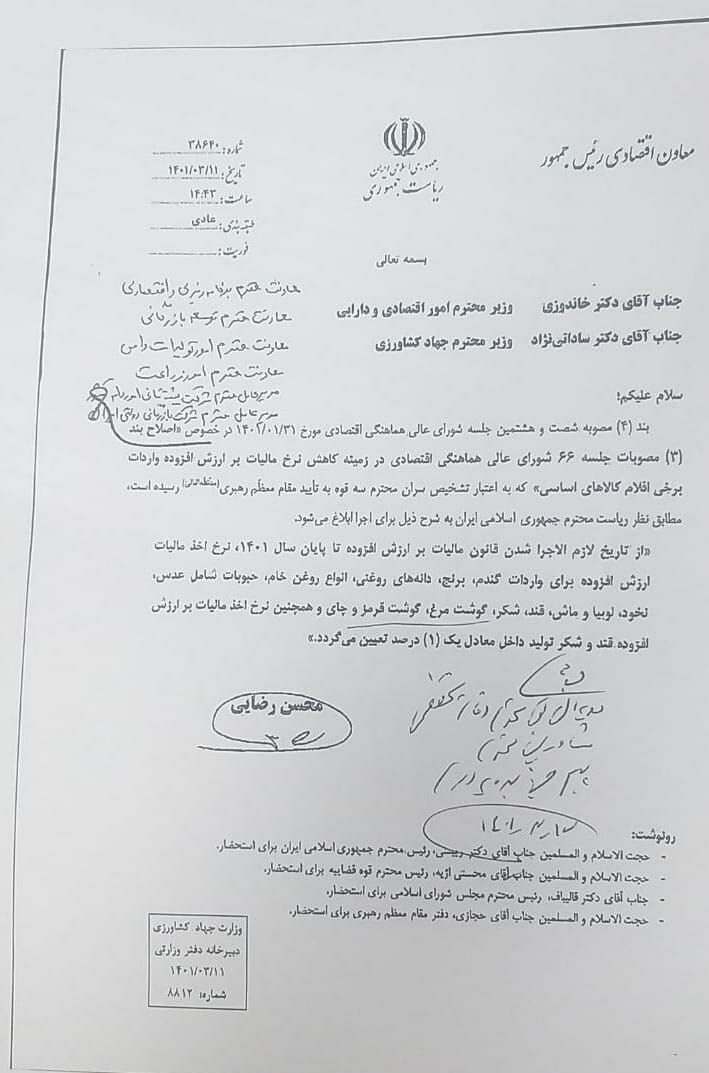 معاون اقتصادی رئیس جمهور
جمهوری اسلامی ایران
ریاست جمهوری
شماره: ۳۸۶۴۰
تاریخ: ۱۴۰۱/۰۳/۱۱
ساعت: ۱۴:۴۳
طبقه بندی: عادی
فوریت:
بسمه تعالی
جناب آقای دکتر خاندوزی وزیر محترم امور اقتصادی و دارایی
جناب آقای دکتر ساداتی‌نژاد وزیر محترم جهاد کشاورزی
معاونت محترم برنامه ریزی و اقتصادی
معاونت محترم توسعه بازرگانی
معاونت محترم امور تولیدات دامی
معاونت محترم امور زراعت
مدیرعامل محترم شرکت پشتیبانی امور دام کشور
مدیرعامل محترم شرکت بازرگانی دولتی ایران
سلام علیکم؛
بند (۴) مصوبه شصت و هشتمین جلسه شورای عالی هماهنگی اقتصادی مورخ در خصوص «اصلاح بند
(۳) مصوبات جلسه ۶۶ شورای عالی هماهنگی اقتصادی در زمینه کاهش نرخ مالیات بر ارزش افزوده واردات
برخی اقلام کالاهای اساسی» که به اعتبار تشخیص سران محترم سه قوه به تأیید مقام معظم رهبری رسیده است،
مطابق نظر ریاست محترم جمهوری اسلامی ایران به شرح ذیل برای اجرا ابلاغ می‌شود.
«از تاریخ لازم الاجرا شدن قانون مالیات بر ارزش افزوده تا پایان سال ۱۴۰۱، نرخ اخذ مالیات
ارزش افزوده برای واردات گندم، برنج، دانه‌های روغنی، انواع روغن خام، حبوبات شامل عدس،
نخود، لوبیا و ماش، قند، شکر، گوشت مرغ، گوشت قرمز و چای و همچنین نرخ اخذ مالیات بر ارزش
افزوده قند و شکر تولید داخل معادل یک (۱) درصد تعیین می‌گردد.»
محسن رضایی
رونوشت:
- حجت الاسلام و المسلمین جناب آقای دکتر رییسی، رئیس محترم جمهوری اسلامی ایران برای استحضار.
- حجت الاسلام و المسلمین جناب آقای محسنی اژیه، رئیس محترم قوه قضاییه برای استحضار.
- جناب آقای دکتر قالیباف، رئیس محترم مجلس شورای اسلامی برای استحضار.
- حجت الاسلام و المسلمین جناب آقای حجازی، دفتر مقام معظم رهبری برای استحضار.
وزارت جهاد کشاورزی
دبیرخانه دفتر وزارتی
۱۴۰۱/۰۳/۱۱
شماره: ۸۸۱۲